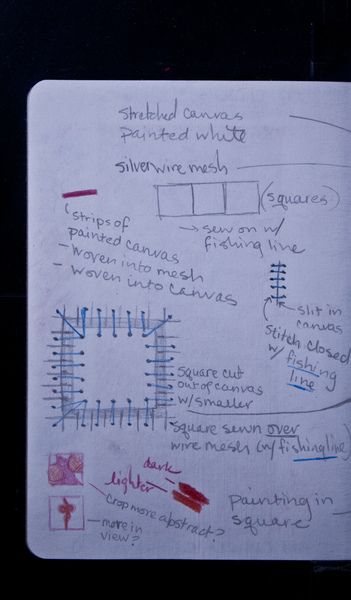 stretched canvas
painted white
silver wire mesh
(squares)
→ sew on w/
fishing line
strips of
painted canvas
- woven into mesh
- woven into canvas
slit in
canvas
stitch closed
w/ fishing
line
square cut
out of canvas
w/ smaller
square sewn over
wire mesh (w/ fishing line)
dark
lighter
crop more abstract?
more in
view?
painting in
square